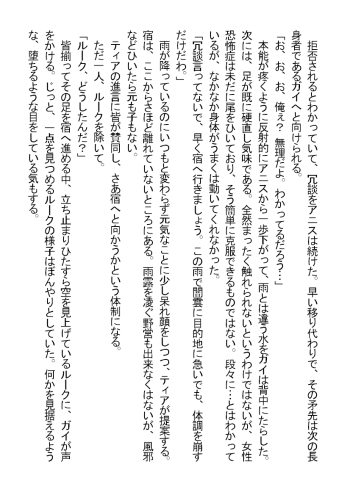 拒否されるとわかっていて、冗談をアニスは続けた。早い移り代わりで、その矛先は次の長
身者であるガイへと向けられる。
「お、お、お、俺ぇ？　無理だよ。わかってるだろう…」
　本能が疼くように反射的にアニスから一歩下がって、雨とは違う水をガイは背中にたらした。
次には、足が既に硬直し気味である。全然まったく触れられないというわけではないが、女性
恐怖症は未だに尾をひいており、そう簡単に克服できるものではない。段々に…とはわかって
いるが、なかなか身体がうまくは動いてくれなかった。
「冗談言ってないで、早く宿へ行きましょう。この雨で闇雲に目的地に急いでも、体調を崩す
だけだわ。」
　雨が降っているのにいつもと変わらず元気なことに少し呆れ顔をしつつ、ティアが提案する。
宿は、ここからさほど離れていないところにある。雨露を凌ぐ野営も出来なくはないが、風邪
などひいたら元も子もない。
　ティアの進言に皆が賛同し、さあ宿へと向かうかという体制になる。
　ただ一人、ルークを除いて。
「ルーク、どうしたんだ？」
　皆揃ってその足を宿へ進める中、立ち止まりひたすら空を見上げているルークに、ガイが声
をかける。じっと、一点を見つめるルークの様子はぼんやりとしていた。何かを見据えるよう
な、堕ちるような目をしている気もする。